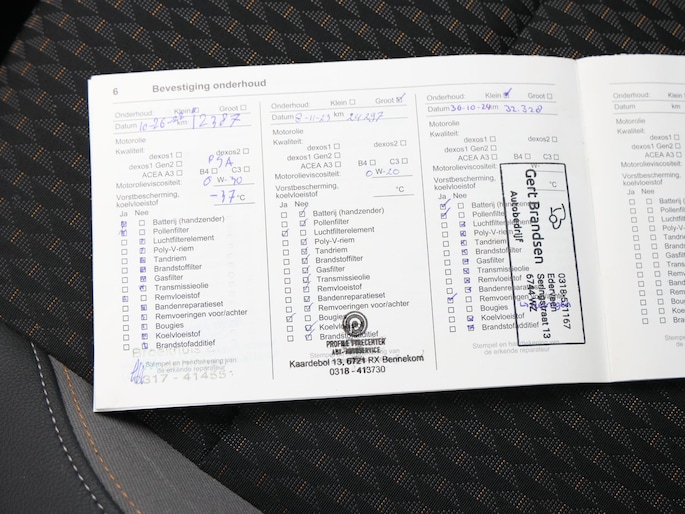 6 Bevestiging onderhoud
Onderhoud: Klein Groot
Datum 10-26- km 12387
Motorolie
Kwaliteit:
dexos1 dexos2
dexos1 Gen2 PSA
ACEA A3 B4 C3
Motorolieviscositeit: 0 W-30
Vorstbescherming,
koelvloeistof -37 °C
Ja Nee
Batterij (handzender)
Pollenfilter
Luchtfilterelement
Poly-V-riem
Tandriem
Brandstoffilter
Gasfilter
Transmissieolie
Remvloeistof
Bandenreparatieset
Remvoeringen voor/achter
Bougies
Koelvloeistof
Brandstofadditief
Stempel en handtekening van
de erkende reparateur
0317 - 414551
Onderhoud: Klein Groot
Datum 8-11-23 km 24297
Motorolie
Kwaliteit:
dexos1 dexos2
dexos1 Gen2
ACEA A3 B4 C3
Motorolieviscositeit: 0 W-20
Vorstbescherming,
koelvloeistof °C
Ja Nee
Batterij (handzender)
Pollenfilter
Luchtfilterelement
Poly-V-riem
Tandriem
Brandstoffilter
Gasfilter
Transmissieolie
Remvloeistof
Bandenreparatieset
Remvoeringen voor/achter
Bougies
Koelvloeistof
Brandstofadditief
PROFILE TYRECENTER
ABX-AUTOSERVICE
Kaardebol 13, 6721 RX Bennekom
0318 - 413730
Onderhoud: Klein Groot
Datum 30-10-24 km 32.328
Motorolie
Kwaliteit:
dexos1 dexos2
dexos1 Gen2
ACEA A3 B4 C3
Motorolieviscositeit: W-
Vorstbescherming,
koelvloeistof °C
Ja Nee
Batterij (handzender)
Pollenfilter
Luchtfilterelement
Poly-V-riem
Tandriem
Brandstoffilter
Gasfilter
Transmissieolie
Remvloeistof
Bandenreparatieset
Remvoeringen voor/achter
Bougies
Koelvloeistof
Brandstofadditief
Stempel en handtekening van
de erkende reparateur
Gert Brandsen
Autobedrijf
Seringstraat 13
Ederveen
Onderhoud:
Datum
Motorolie
Kwaliteit:
Motorolieviscositeit:
Vorstbescherming,
koelvloeistof
Ja Nee